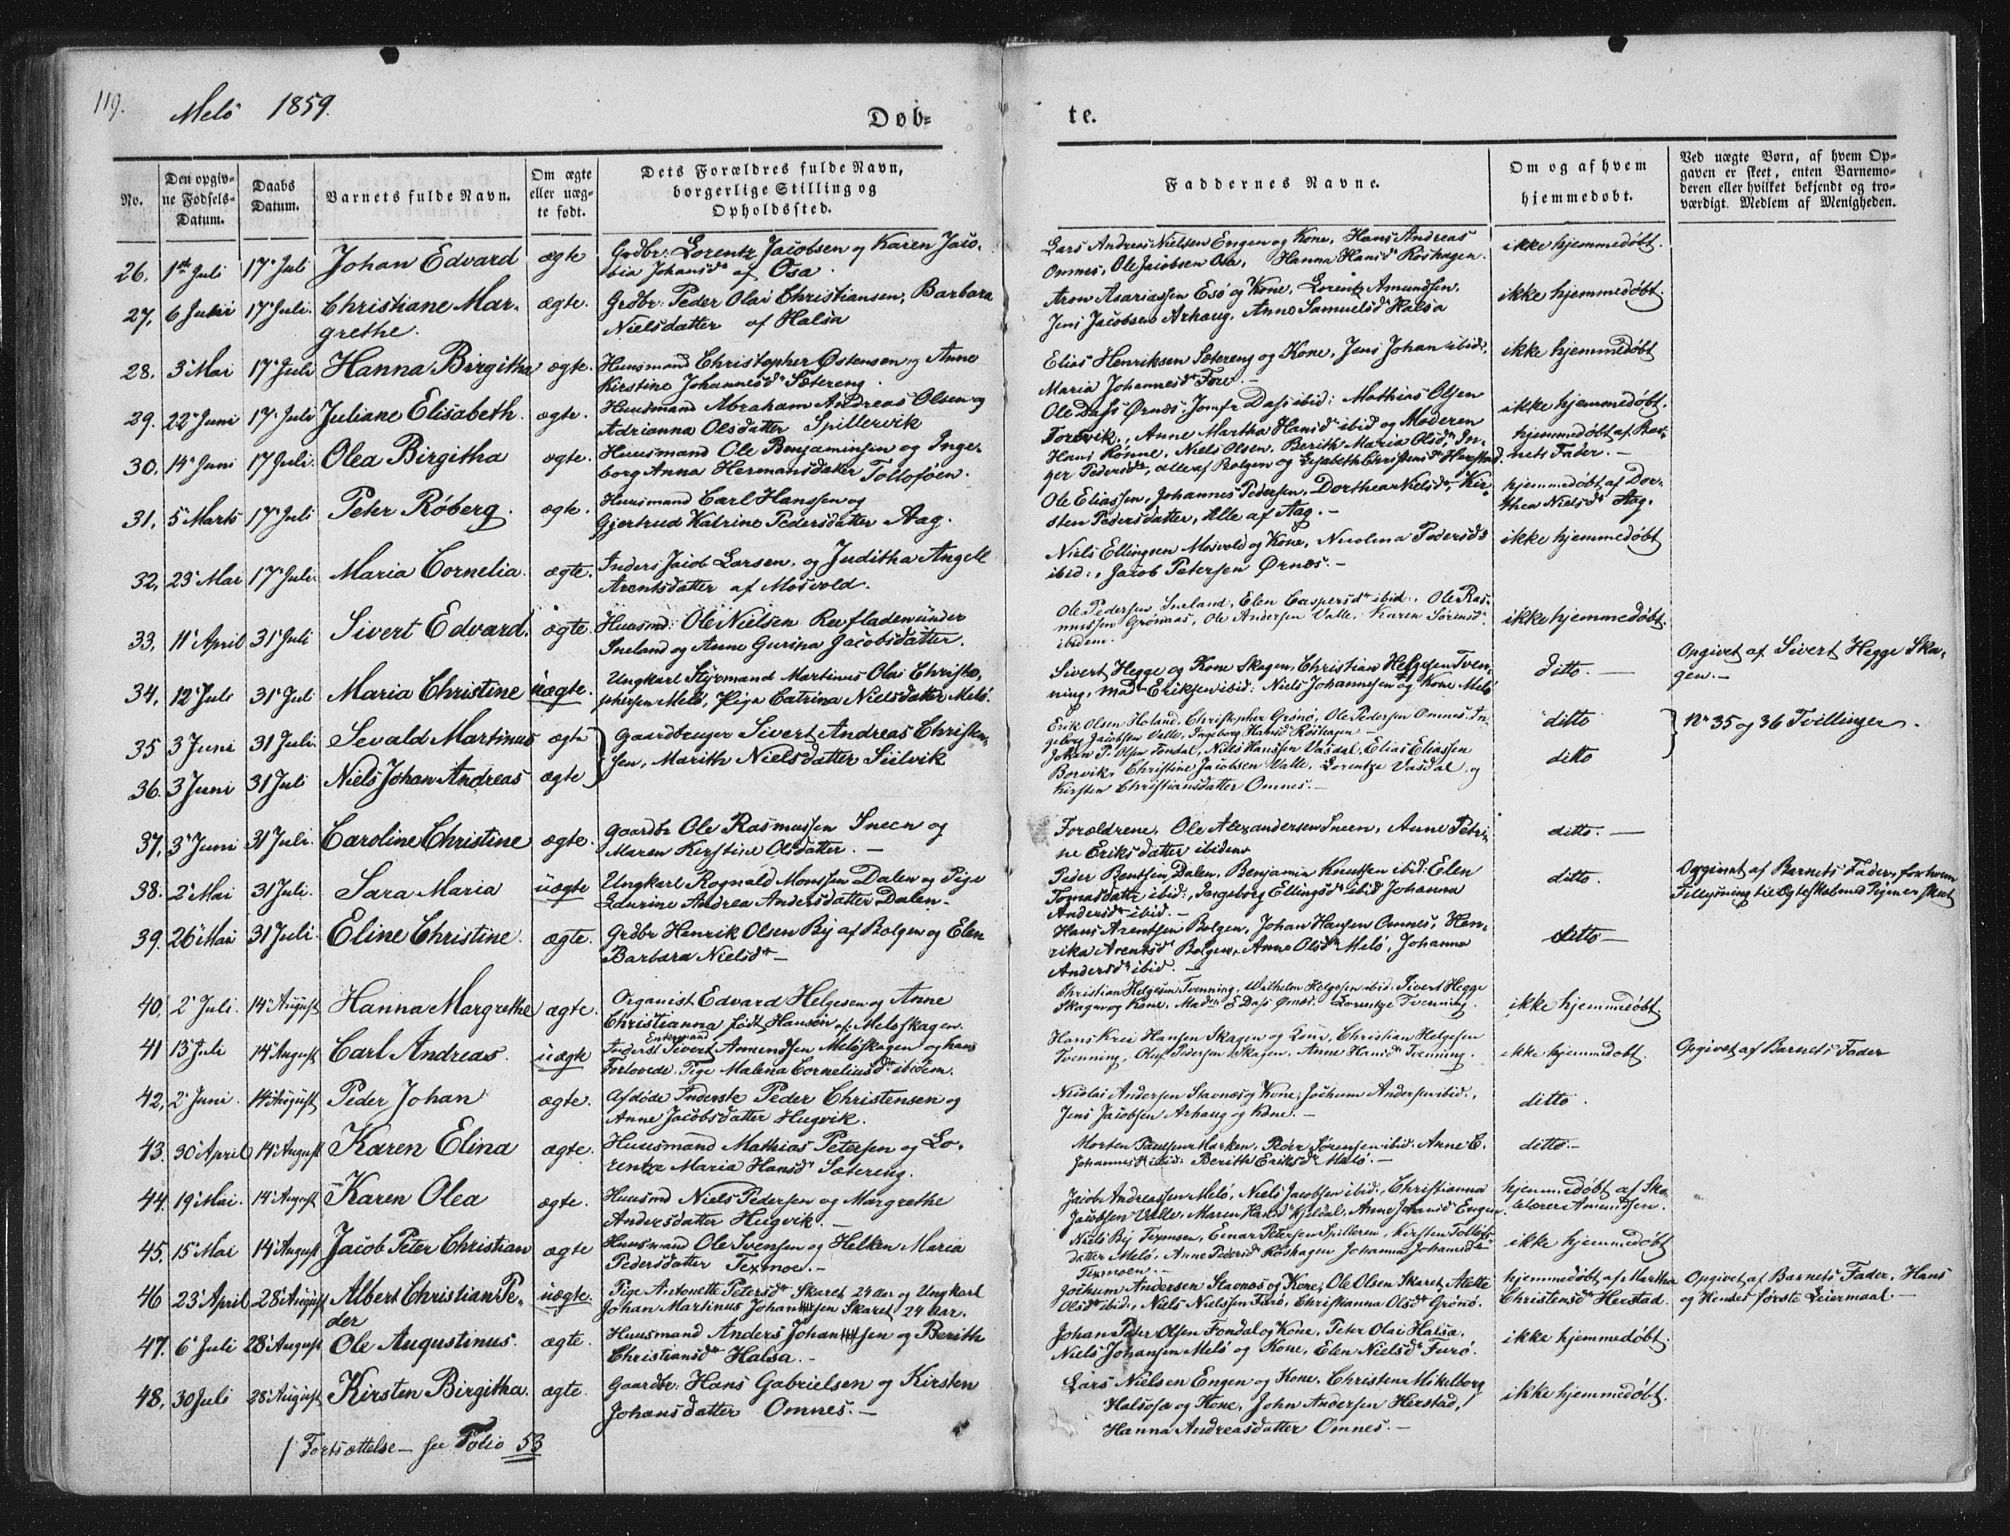 119.
Melö 1859.
Døb=
te.
No.
Den opgiv=
ne Fødsels=
Datum.
Daabs
Datum.
Barnets fulde Navn.
Om ægte
eller uæg=
te født.
Dets Forældres fulde Navn,
borgerlige Stilling og
Opholdssted.
Faddernes Navne.
Om og af hvem
hjemmedøbt.
Ved uægte Børn, af hvem Op=
gaven er skeet, enten Barnemo=
deren eller hvilket bekjendt og tro=
værdigt Medlem af Menigheden.
26. 1ste Juli 17de Juli Johan Edvard ægte Grdbr: Lorentz Jacobsen og Karen Jaco-
bia Johansdr af Osa.
Lars Andreas Nielsen Engen og Kone, Hans Andreas
Omnes, Ole Jacobsen Osa, Hanna Hansdr Röshagen.
ikke hjemmedøbt.
27. 6 Juni 17 Juli. Christiane Mar-
grethe.
ægte. Grdbr: Peder Olai Christiansen, Barbara
Nielsdatter af Halsa
Aron Asariassen Esö og Kone, Lorentz Amundsen,
Jens Jacobsen Arhaug, Anne Samuelsdr Halsa
ikke hjemmedøbt.
28. 3 Mai 17 Juli Hanna Birgitha ægte. Huusmand Christopher Østensen og Anne
Kirstine Johannesdr Sætereng.
Elias Henriksen Sætereng og Kone, Jens Johan ibid:,
Maria Johannesdr Fore.-
ikke hjemmedøbt
29. 22 Juni 17 Juli Juliane Elisabeth. ægte. Huusmand Abraham Andreas Olsen og
Adrianna Olsdatter Spillervik
Ole Dass Ørnæs, Jomfr Dass ibid: Mathias Olsen
Foresvik, Anne Martha Hansdr ibid og Moderen
ikke hjemmedøbt.
30. 14 Juni 17 Juli. Olea Birgitha ægte. Huusmand Ole Benjaminsen og Inge-
borg Anna Hermansdatter Tolloføen.
Hans Könne, Niels Olsen, Berith Maria Olsdr, In-
ger Pedersdr, alle af Bolgen og Elisabeth Christensdr Herstad.
hjemmedøbt af Bar-
nets Fader.-
31. 5 Marts 17 Juli Peter Röberg. ægte. Huusmand Carl Hanssen og
Gjertrud Katrine Pedersdatter Aag.
Ole Eliassen, Johannes Pedersen, Dorthea Nielsdr, Kir-
sten Pedersdatter, Alle af Aag.-
hjemmedøbt af Dor-
thea Nielsdr Aag.
32. 23 Mai 17 Juli. Maria Cornelia. ægte. Anders Jacob Larsen, og Juditha Angell
Arentsdatter af Mosvold.
Niels Ellingsen Mosvold og Kone, Nicolina Pedersdr
ibid:, Jacob Petersen Ørnæs.-
ikke hjemmedøbt
33. 11 April 31 Juli Sivert Edvard. ægte. Huusmd: Ole Nielsen Refladen under
Ineland og Anne Gurina Jacobsdatter.
Ole Pedersen Ineland, Elen Caspersdr ibid., Ole Ras-
mussen Grönnæs, Ole Andersen Valle, Karen Sörensdr
ibidem.
ikke hjemmedøbt.
34. 12 Juli 31 Juli Maria Christine uægte. Ungkarl Styrmand Martinus Olai Christo-
phersen Melö, Pige Catrina Nielsdatter Melö.
Sivert Hegge og Kone Skagen, Christian Helgesen Tven-
ning, Mad: Eriksen ibid: Niels Johannesen og Kone Melö
ditto.-
Opgivet af Sivert Hegge Ska-
gen.-
35 3 Juni 31 Juli Sevald Martinus ægte Gaardbruger Sivert Andreas Christen-
sen, Marith Nielsdatter Selvik
Erik Olsen Holand, Christopher Grönö, Ole Pedersen Omnes, In-
geborg Jacobsen Valle, Ingeborg Hansdr Röshagen-
ditto
No 35 og 36 Tvillinger.
36. 3 Juni 31 Juli Niels Johan Andreas ægte
Johan P. Olsen Fondal, Niels Hanssen Vasdal, Elias Eliassen
Borvik, Christine Jacobsen Valle, Lorentze Vasdal og
Kirsten Christiansdatter Omnes.-
ditto
37. 3 Juni 31 Juli. Caroline Christine ægte. Gaardbr Ole Rasmussen Sneen og
Maren Kirstine Olsdatter.-
Forældrene, Ole Alexandersen Sneen, Anne Petri-
ne Eriksdatter ibidem
ditto.-
38. 2 Mai 31 Juli. Sara Maria uægte Ungkarl Rognald Monssen Dalen og Pige
Laurine Andrea Andersdatter Dalen-
Peder Bentsen Dalen, Benjamin Knutsen ibid: Elen
Tomasdatter ibid:, Ingeborg Ellingsdr ibid Johanna
Andersdr ibid.-
ditto.
Opgivet af Barnets Fader, for hvem
Tillysning til Ægteskab med Pigen er skeet
39. 26 Mai 31 Juli. Eline Christine. ægte. Grdbr Henrik Olsen Bij af Bolgen og Elen
Barbara Nielsdr-
Hans Arentsen Bolgen, Johan Hansen Omnes, Hen-
rika Arentsdr Bolgen, Anne Olsdr Melö, Johanna
Andersdr ibid.-
ditto-
40. 2 Juli. 14 August Hanna Margrethe ægte. Organist Edvard Helgesen og Anne
Christianna født Hansen af Melöskagen.
Christian Helgesen Tvenning, Wilhelm Helgesen ibid: Sivert Hegge
Skagen og Kone, Madm E Dass Ørnæs. Lorentze Tvenning.
ikke hjemmedøbt.
41 13 Juli 14 August Carl Andreas. uægte Inderst Enkemand Sivert Amundsen Melöskagen og hans
Forlovede Pige Malena Corneliusdr ibidem.
Hans Krei Hansen Skagen og Kone, Christian Helgesen
Tvenning, Oluf Pedersen Skagen, Anne Hansdr Tvenning.
ikke hjemmedøbt.
Opgivet af Barnets Fader
42. 2 Juni. 14 August Peder Johan ægte. Afdøde Inderste Peder Christensen og
Anne Jacobsdatter Hugvik.
Nicolai Andersen Stavnæs og Kone, Jochum Andersen ibid.,
Jens Jacobsen Arhaug og Kone.-
ditto.
43. 30 April 14 August Karen Elina ægte. Huusmand Mathias Petersen og Lo-
rentza Maria Hansdr Sætereng.
Morten Paulsen Marken, Peder Sörensen ibid: Anne E.
Johannesdr ibid: Berith Eriksdr Melö.-
ditto.-
44. 19 Mai. 14 August Karen Olea ægte. Huusmd Niels Pedersen og Margrethe
Andersdatter Hugvik.-
Jacob Andreassen Melö, Niels Jacobsen ibid., Christianna
Jacobsen Valle, Maren Hansdr Kjeldal, Anne Johansdr Engen.
hjemmedøbt af Sko-
lelærer Amundsen.
45. 15 Mai 14 August Jacob Peter Christian ægte Huusmand Ole Svensen og Helken Maria
Pedersdatter Texmoe.-
Niels Bij Texmoen, Einar Petersen Spilleren, Kirsten Tollefs-
datter Melö, Anne Pedersdr Röshagen Johanna Johansdr
Texmoen.-
ikke hjemmedøbt
46 23 April 28 August Albert Christian Pe-
der
uægte. Pige Antonette Petersdr Skaret 21 Aar og Ungkarl
Johan Martinus Johansen Skaret 24 Aar.
Jochum Andersen Stavnæs og Kone, Ole Olsen Skaret, Alette
Olsdr ibid., Niels Nielsen Furö, Christianna Olsdr Grönö.
hjemmedøbt af Martha
Christensdr Herstad.
Opgivet af Barnets Fader, Hans
og Hendes første Leiermaal.-
47. 6 Juli 28 August Ole Augustinus. ægte. Huusmand Anders Johansen og Berith
Christiansdr Halsa.-
Johan Peter Olsen Fondal og Kone, Peter Olai Halsa,
Niels Johansen Melö og Kone, Elen Nielsdr Furö.
ikke hjemmedøbt.
48. 30 Juli 28 August Kirsten Birgitha. ægte. Gaardbr: Hans Gabrielsen og Kirsten
Johansdatter Omnes.-
Lars Nielsen Engen og Kone, Christen Mikelborg
Halsosa og Kone, John Andersen Herstad,
Hanna Andreasdatter Omnes.-
ikke hjemmedøbt.
/ Fortsættelse- see Folio 53